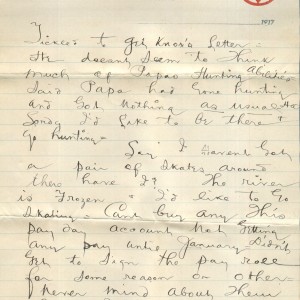 1917
Tickled to get Knox's letter.
He doesnt seem to think
much of Papas Hunting Abilities
Said Papa had gone hunting
and Got Nothing as usual. Gee
I'd like to be there +
go hunting.
Say I havent got
a pair of skates around
there have I? The river
is frozen + I'd like to go
skating. Cant buy any this
pay day account not getting
any pay until January Didn't
get to sign the pay role
for some reason or other
Never mind about them